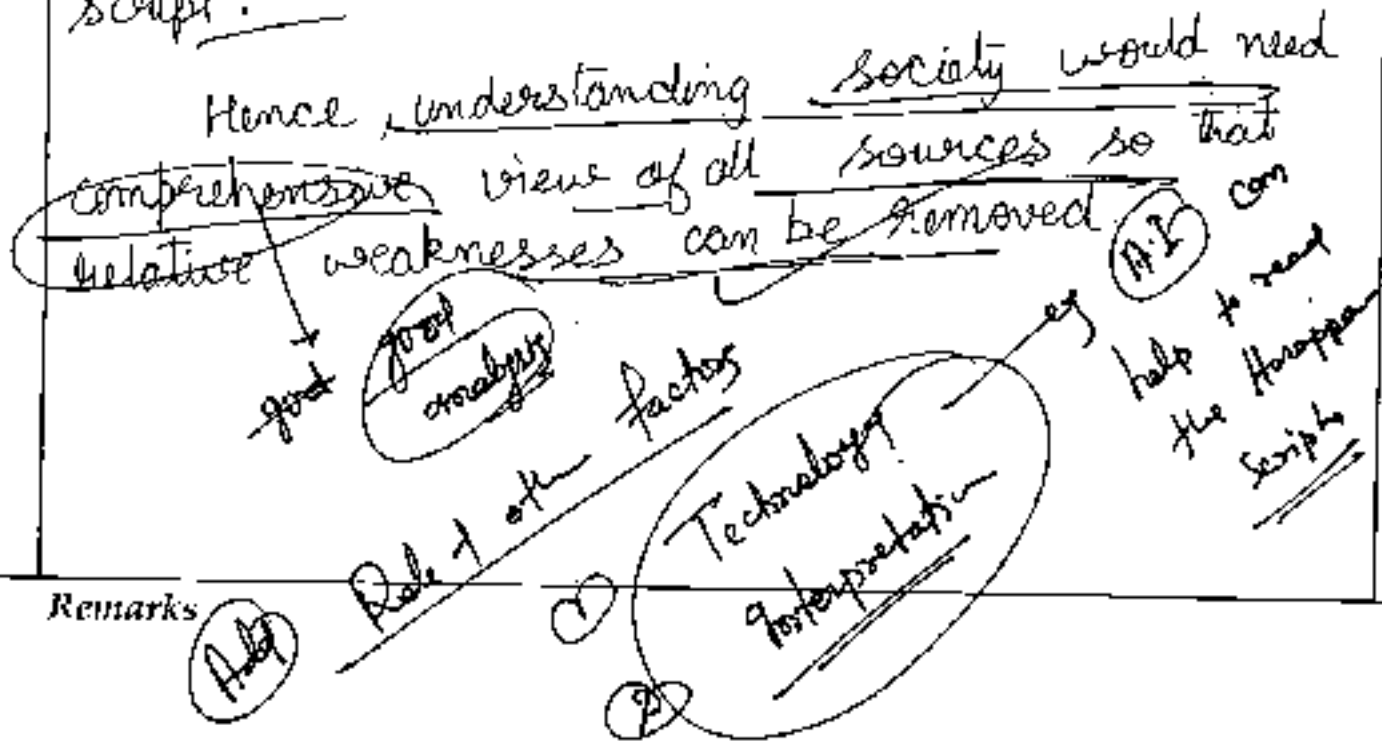 script.
Hence, understanding society would need
comprehensive view of all sources so that
relative weaknesses can be removed.
good
good
analysis
Add
Role of other factors
① Technology
② Interpretation
eg A.I can
help to read
the Harappan
Scripts
Remarks